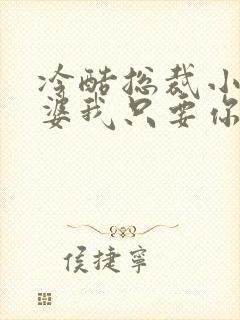 冷酷总裁小
婆我只要你
侯捷宁